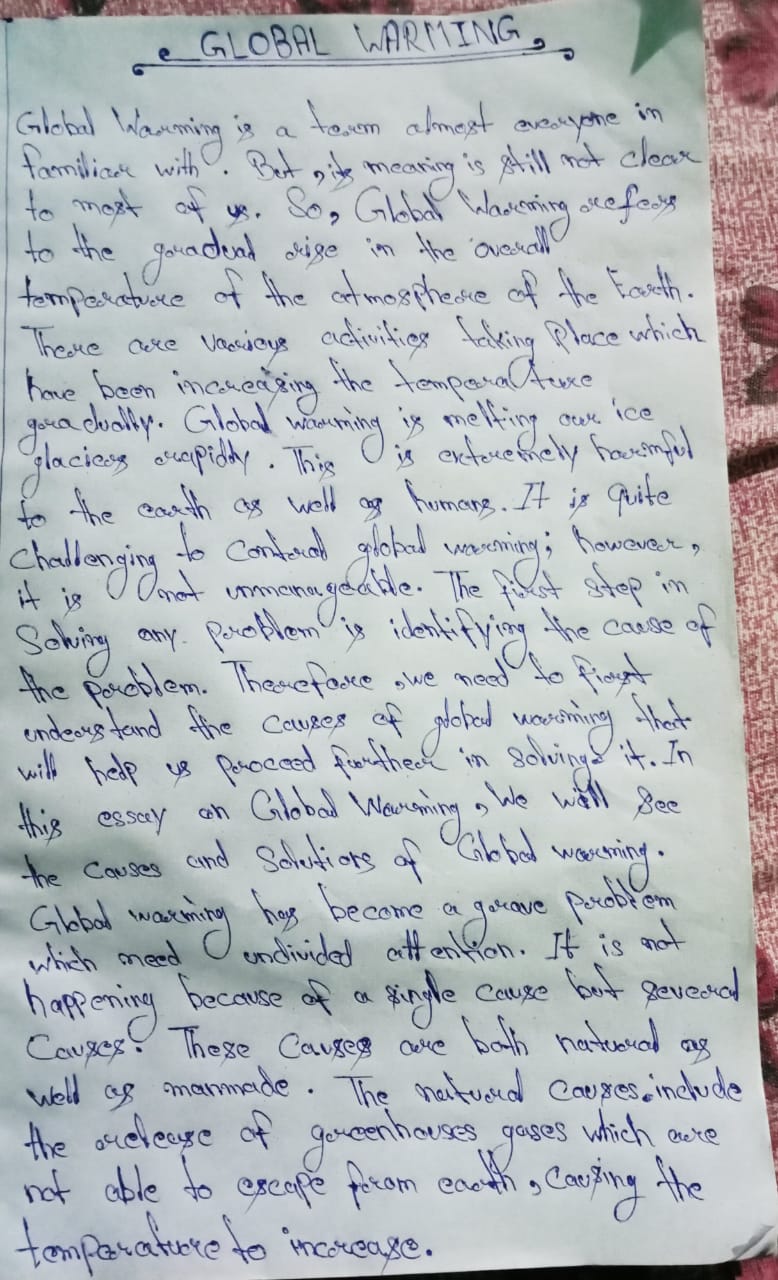 GLOBAL WARMING
Global Warming is a term almost everyone in
familiar with. But, its meaning is still not clear
to most of us. So, Global Warming refers
to the gradual rise in the overall
temperature of the atmosphere of the Earth.
There are various activities taking Place which
have been increasing the temperature
gradually. Global warming is melting our ice
glaciers rapidly. This is extremely harmful
to the earth as well as humans. It is quite
Challenging to Control global warming; however,
it is not unmanageable. The first step in
Solving any problem is identifying the cause of
the problem. Therefore, we need to first
understand the causes of global warming that
will help us proceed further in solving it. In
this essay on Global Warming, We will See
the Causes and Solutions of Global warming.
Global warming has become a grave problem
which need undivided attention. It is not
happening because of a single cause but several
Causes. These Causes are both natural as
well as manmade. The natural Causes include
the release of greenhouses gases which are
not able to escape from earth, Causing the
temperature to increase.